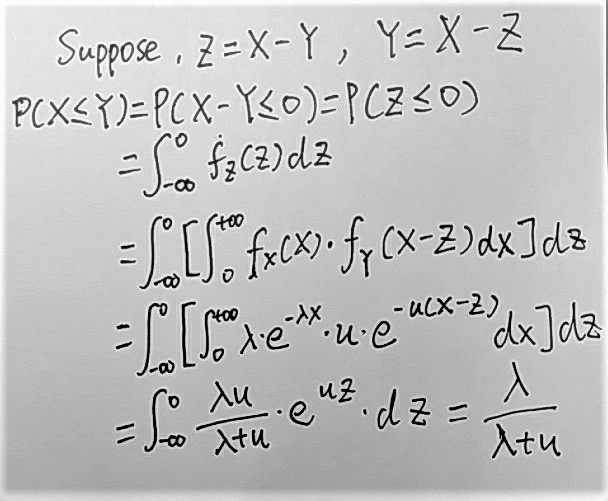 Suppose, Z=X-Y, Y=X-Z
P(X≤Y)=P(X-Y≤0)=P(Z≤0)
=∫_{-∞}^{0} f_Z(Z)dz
=∫_{-∞}^{0}[∫_{0}^{+∞} f_X(X)·f_Y(X-Z)dx]dz
=∫_{-∞}^{0}[∫_{0}^{+∞} λ·e^{-λX}·u·e^{-u(X-Z)}dx]dz
=∫_{-∞}^{0} \frac{λu}{λ+u}·e^{uZ}·dz = \frac{λ}{λ+u}